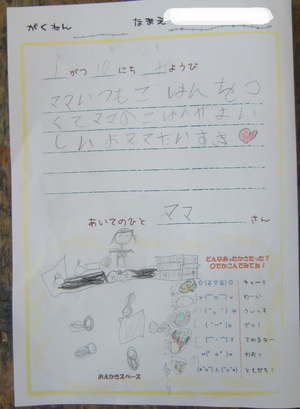 がくねん なまえ
1 がつ 10 にち ようび
ママいつもごはんをつ
くてママのごはんがおい
しいおママだいすき
あいてのひと ママ さん
どんなあったかさだった？
○でかこんでみてね！
キューン
わーい
ういっす
グッ！
てれるなー
わおっ
ともだち！
おえかきスペース